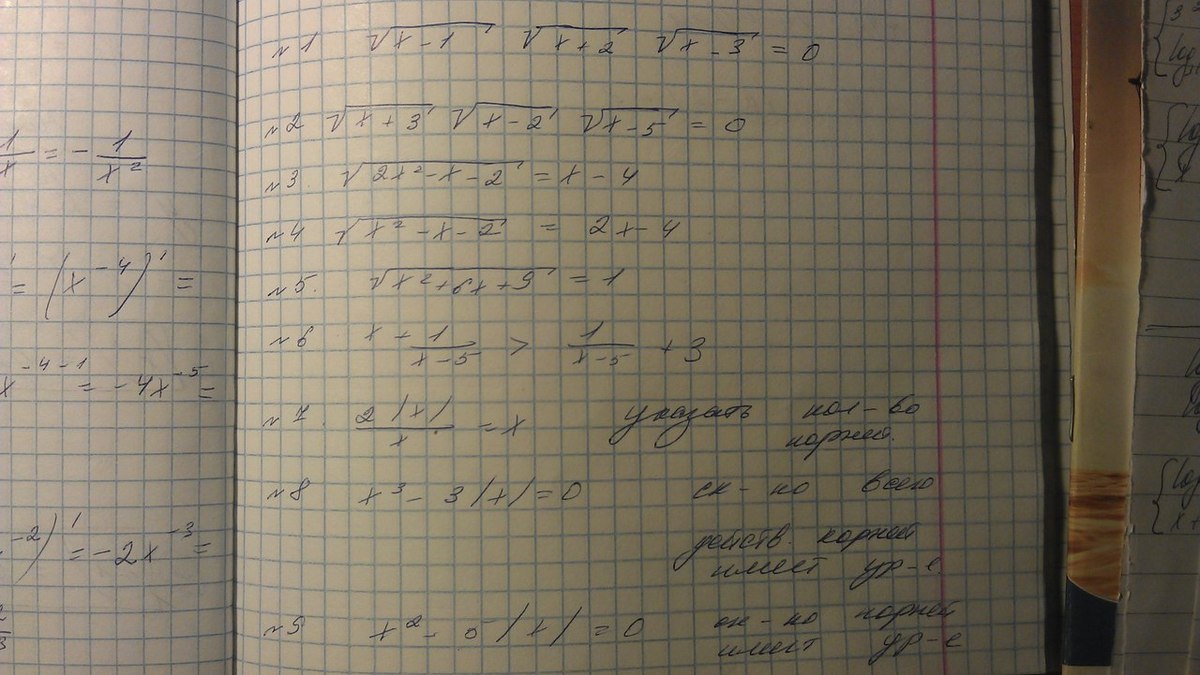 1/x = - 1/x²
' = (x⁻⁴)' =
x⁻⁴⁻¹ = -4x⁻⁵ =
⁻²)' = -2x⁻³ =
№1 √(x-1) √(x+2) √(x-3) = 0
№2 √(x+3) √(x-2) √(x-5) = 0
№3. √(2x²-x-2) = x-4
№4 √(x²-x-2) = 2x-4
№5. √(x²+6x+9) = 1
№6 x + 1/(x-5) > 1/(x-5) + 3
№7. 2|x|/x = x указать кол-во
корней.
№8 x³ - 3|x| = 0 ск-ко всего
действ. корней
имеет ур-е.
№9 x² - 5|x| = 0 ск-ко корней
имеет ур-е